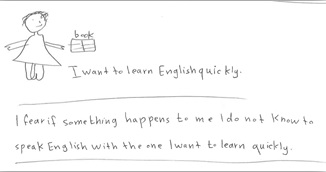 book
I want to learn English quickly.
I fear if something happens to me I do not know to
speak English with the one I want to learn quickly.